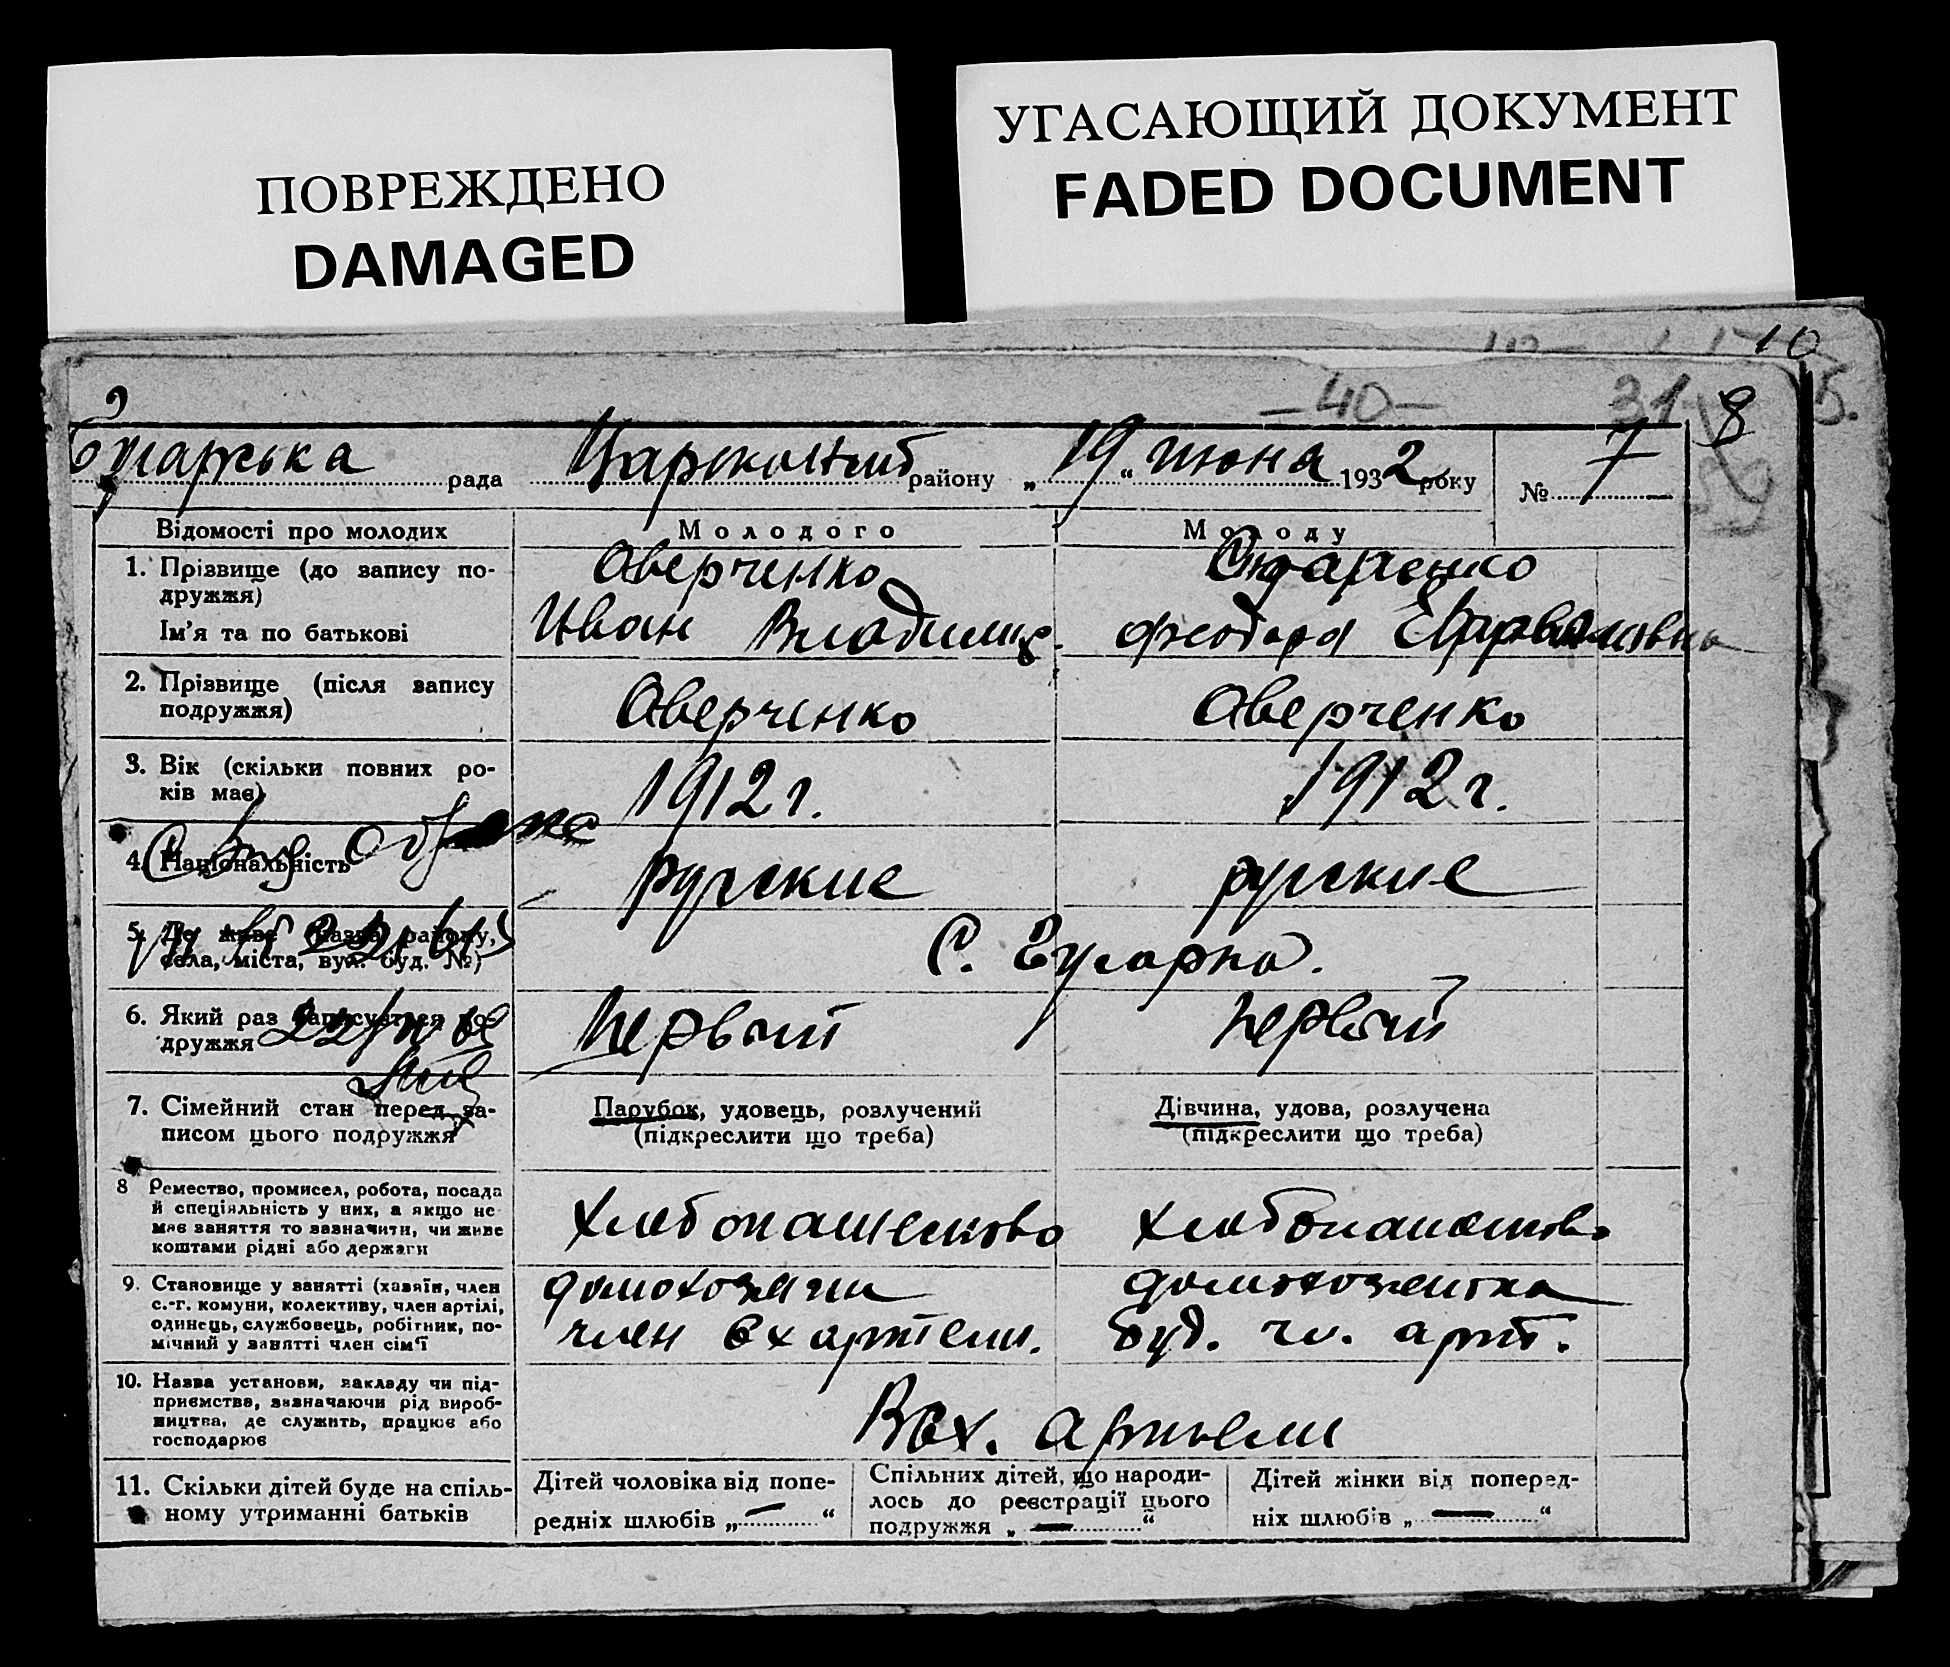 ПОВРЕЖДЕНО
DAMAGED
УГАСАЮЩИЙ ДОКУМЕНТ
FADED DOCUMENT
10
-40- 31 8 5.
рада району „19“ июна 1932 року № 7
Відомості про молодих Молодого Молоду
1. Прізвище (до запису по-
дружжя)
Аверченко
Ім'я та по батькові
Иван Владимир. Феодора
2. Прізвище (після запису
подружжя)
Аверченко Аверченко
3. Вік (скільки повних ро-
ків має)
1912 г. 1912 г.
4. Національність
русские русские
5. Де живе (назва району,
села, міста, вул. буд. №)
С.
6. Який раз записується по-
дружжя
Первый Первый
7. Сімейний стан перед за-
писом цього подружжя
Парубок, удовець, розлучений
(підкреслити що треба)
Дівчина, удова, розлучена
(підкреслити що треба)
8 Ремество, промисел, робота, посада
й спеціяльність у них, а якщо не
має заняття то зазначити, чи живе
коштами рідні або держави
хлебопашество хлебопашество
9. Становище у занятті (хазяїн, член
с.-г. комуни, колективу, член артілі,
одинець, службовець, робітник, по-
мічний у занятті член сім'ї
домохозяин домохозяйка
член сх артели. буд. чл. арт.
10. Назва установи, закладу чи під-
приємства, зазначаючи рід вироб-
ництва, де служить, працює або
господарює
В сх. артели
11. Скільки дітей буде на спіль-
ному утриманні батьків
Дітей чоловіка від попе-
редніх шлюбів „—“
Спільних дітей, що народи-
лось до реєстрації цього
подружжя „—“
Дітей жінки від поперед-
ніх шлюбів „—“